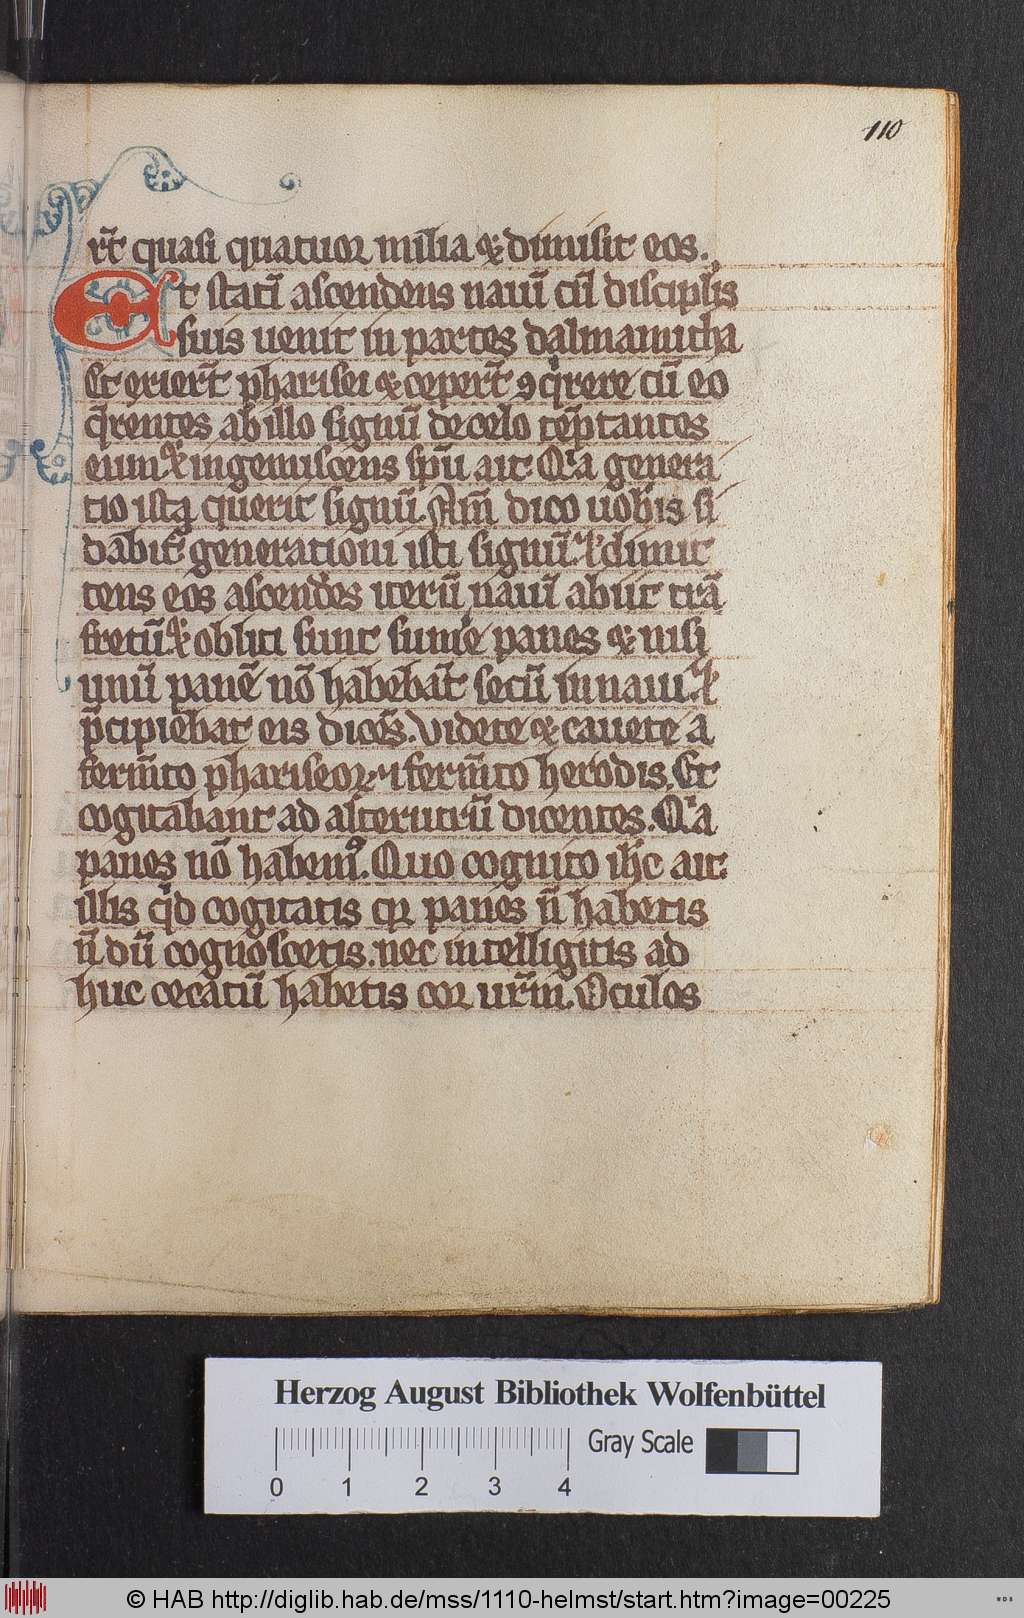 110
rt̄ quasi quatuor milia & dimisit eos.
Et stati᷑ ascendens nauī cū discipĺis
suis uenit in partes dalmanutha
Et exiert̄ pharisei & cepert̄ ꝯqͥrere cū eo
q̄rentes ab illo signū de celo tēptantes
eum & ingemiscens spū ait Qͥa genera
tio ista querit signū. Am̄ dico uobis si
dabit᷑ generationi isti signū. & dimit
tens eos ascendēs iterū nauī abiit trā
fretū & obliti sunt sum̄e panes & nisi
unū panē nō habebāt secū in naui. &
p̄cipiebat eis dicēs. Videte & cauete a
ferm̄to phariseoꝝ & ferm̄to herodis. Et
cogitabant ad alterutrū dicentes. Qͥa
panes nō habemꝰ. Quo cognito ih̄c ait
illis qͥd cogitatis qꝛ panes n̄ habetis
n̄ dū cognoscetis. nec intelligitis ad
huc cecatū habetis cor ur̄m. Oculos
Herzog August Bibliothek Wolfenbüttel
Gray Scale
0 1 2 3 4
© HAB http://diglib.hab.de/mss/1110-helmst/start.htm?image=00225